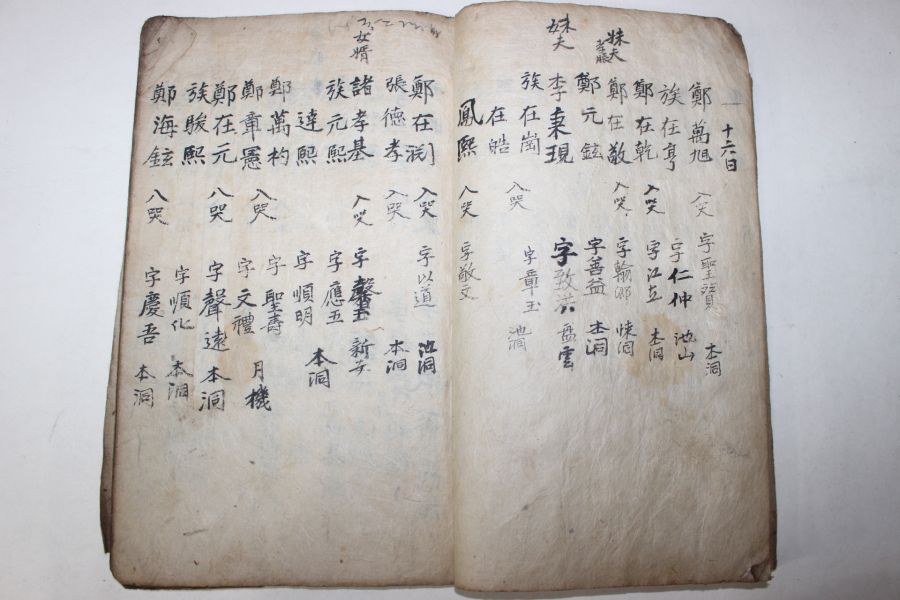 十六日
鄭萬旭 入哭 字聖 本洞
族在亨 字仁仲 池山
鄭在乾 入哭 字江立 本洞
妹夫
鄭在敬 入哭 字翰卿 悚洞
鄭元鉉 字善益 本洞
妹夫
李秉現 字致洪 盘雲
族在崗
在皓 入哭 字章玉 池洞
鳳熙 入哭 字敬文
鄭在 入哭 字以道 池洞
張德孝 入哭 本洞
女婿
諸孝基 入哭 字馨 新安
族元熙 字應五
達熙 字順明 本洞
鄭萬杓 字聖壽
鄭章憲 入哭 字文禮 月機
鄭在元 入哭 字聲遠 本洞
族駿熙 字順化 本洞
鄭海鉉 入哭 字慶吾 本洞